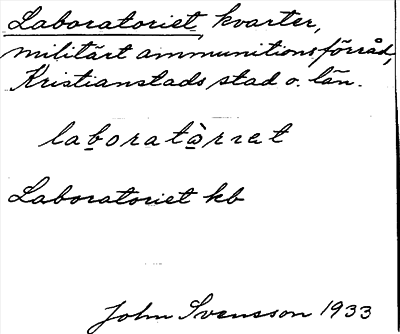 Laboratoriet, kvarter,
militärt ammunitionsförråd,
Kristianstads stad o. län.
laboratòrıet
Laboratoriet kb
John Svensson 1933